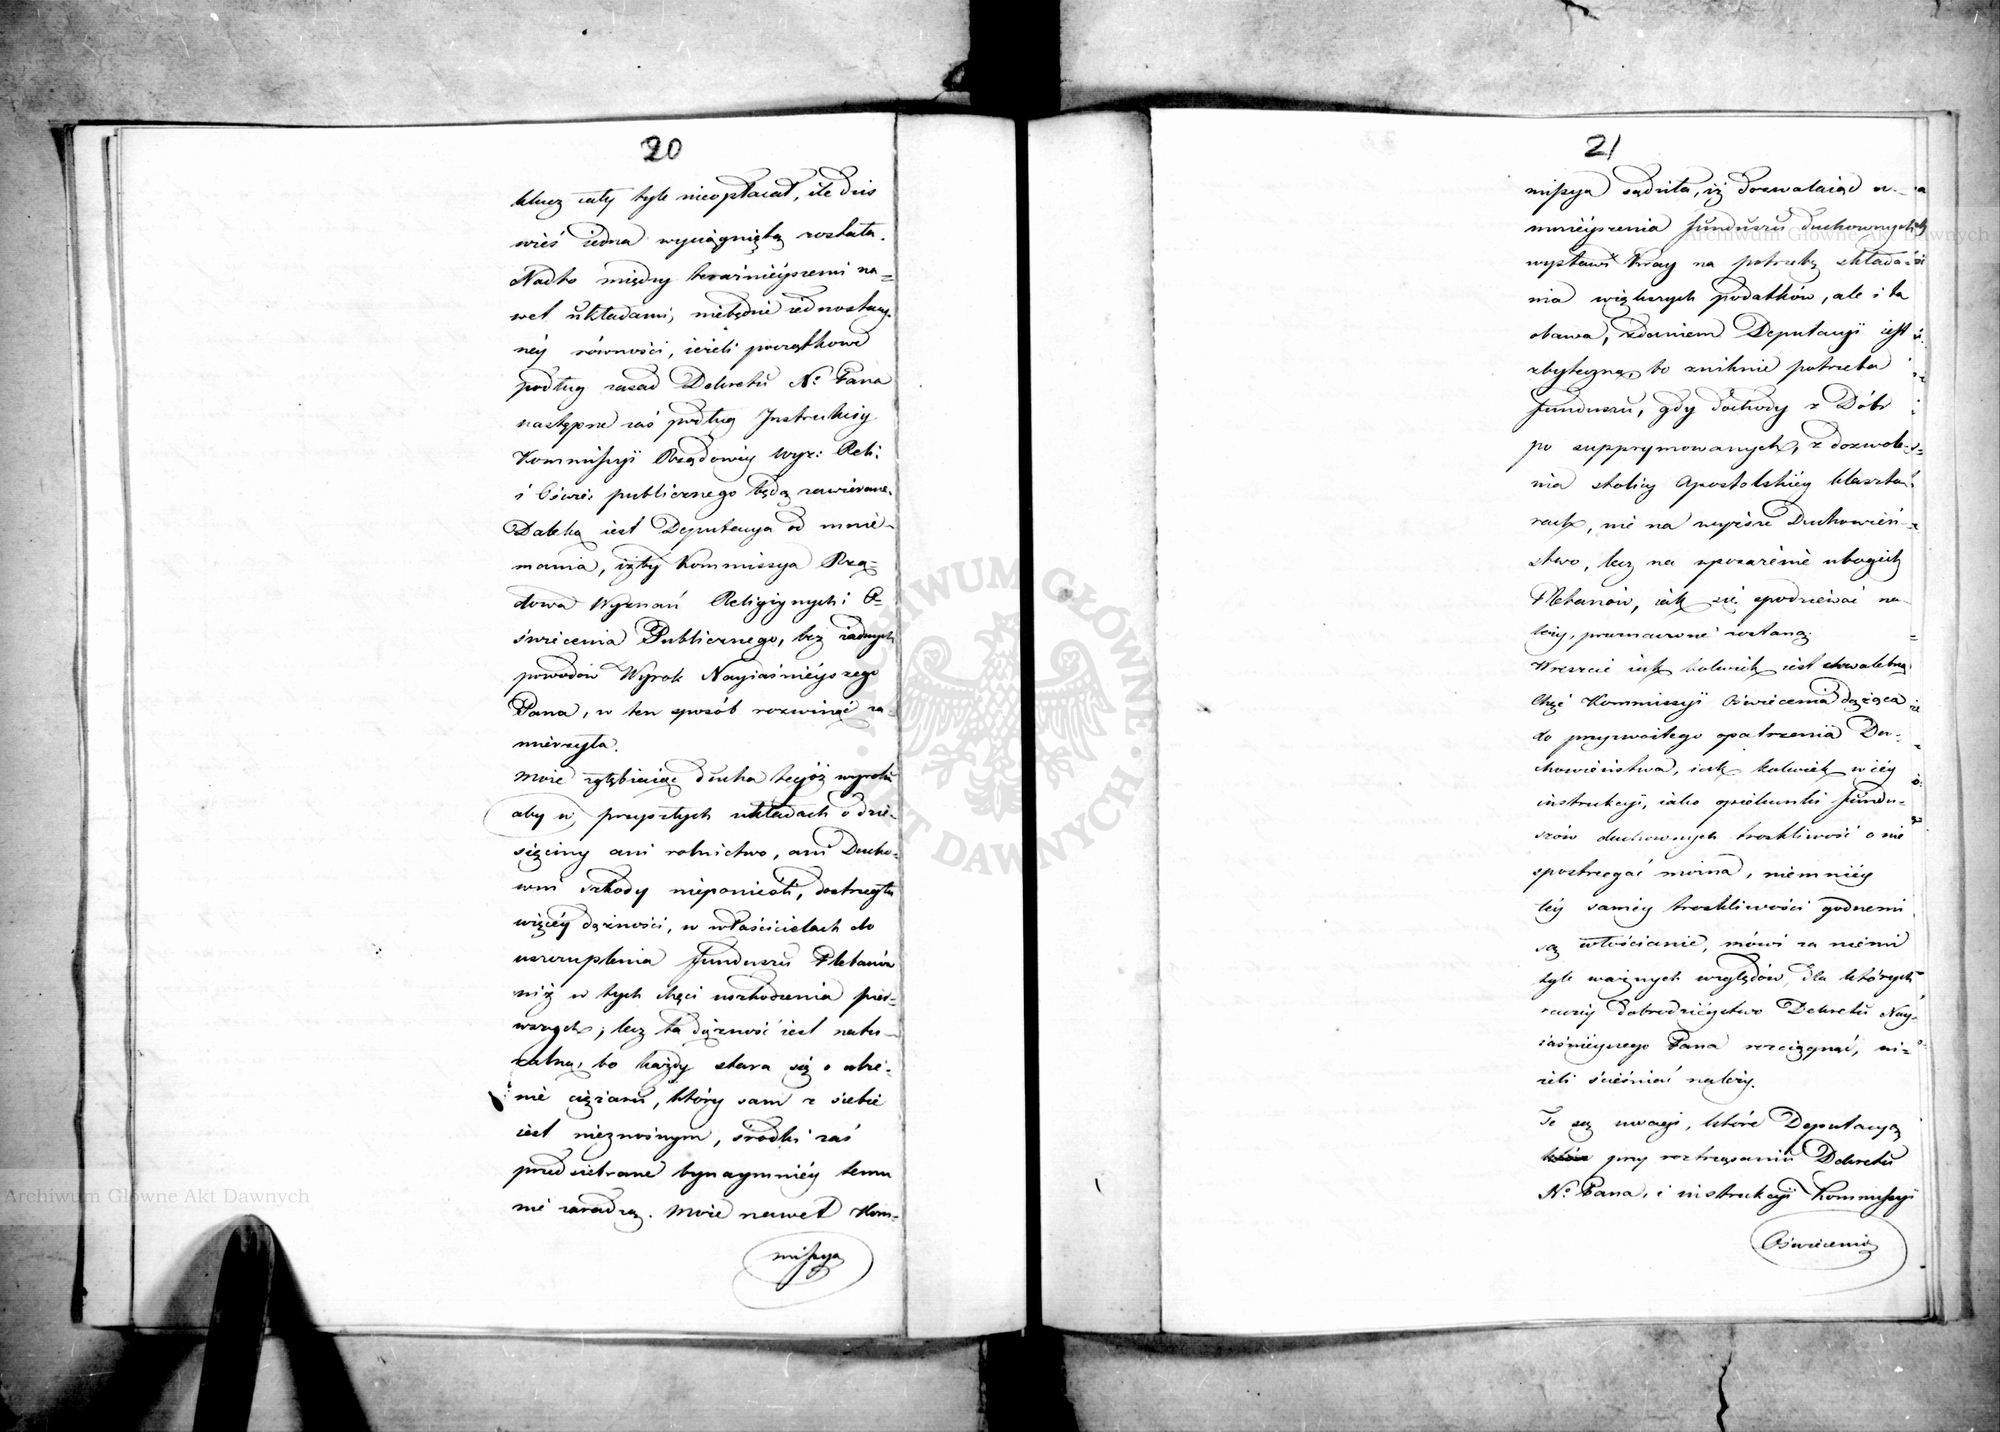 20
klucz cały tyle nieopłacał, ile dziś
wieś iedna wyciągniętą została.
Nadto między teraźnieyszemi na=
wet układami, niebędzie iednostay=
néy równości, ieżeli początkowe
podług zasad Dekretu N° Pana
następne zaś podług Instrukcyi
Kommissyi Rządowéy Wyz: Reli:
i Oświe: publicznego będą zawierane.
Daleką iest Deputacya od mnie=
mania, iżby Kommissya Rzą=
dowa Wyznań Religiynych i O=
świecenia Publicznego, bez żadnych
powodów Wyrok Nayiaśnieyszego
Pana, w ten sposób rozwinąć za=
mierzyła.
Może zgłębiaiąc ducha tegóż wyroku
aby w przyszłych układach o dzie=
sięciny ani rolnictwo, ani Ducho=
wni szkody nieponieśli, dostrzegła
więcéy dążności, w właścicielach do
uszczuplenia funduszu Plebanów
niż w tych chęci uszkodzenia pier=
wszych; lecz ta dążność iest natu=
ralną, bo każdy stara się o ulże=
nie ciężaru, który sam z siebie
iest nieznośnym, środki zaś
przedsiebrane bynaymniéy temu
nie zaradzą. Może nawet Kom=
missya
21
missya sądziła, iż dozwalaiąc u=
mnieyszenia funduszu duchownych
wystawi kray na potrzebę składa=
nia większych podatków, ale i ta
obawa, zdaniem Deputacyi iest
zbyteczną, bo zniknie potrzeba
funduszu, gdy dochody z Dóbr
po supprymowanych, z dozwole=
nia stolicy Apostolskiéy klaszto=
rach, nie na wyższe Duchowień=
stwo, lecz na uposażenie ubogich
Plebanów, iak się spodziewać na=
leży, przeznaczone zostaną.
Wreszcie iak kolwiek iest chwalebną
Chęć Kommissyi Oświecenia dążąca
do przyzwoitego opatrzenia Du=
chowieństwa, iak kolwiek w iéy
instrukcyi, iako opiekunki fundu=
szów duchownych troskliwość o nie
spostrzegać można, niemniéy
téy saméy troskliwości godnemi
są włościanie, mówi za niemi
tyle ważnych względów, dla których
raczéy dobrodzieystwo Dekretu Nay=
iaśnieyszego Pana rozciągnąć, ni=
żeli ścieśniać należy.
Te są uwagi, które Deputacya
przy roztrząsaniu Dekretu
N° Pana, i instrukcyi Kommissyi
Oświecenia
Archiwum Główne Akt Dawnych
Archiwum Główne Akt Dawnych
ARCHIWUM GŁÓWNE AKT DAWNYCH